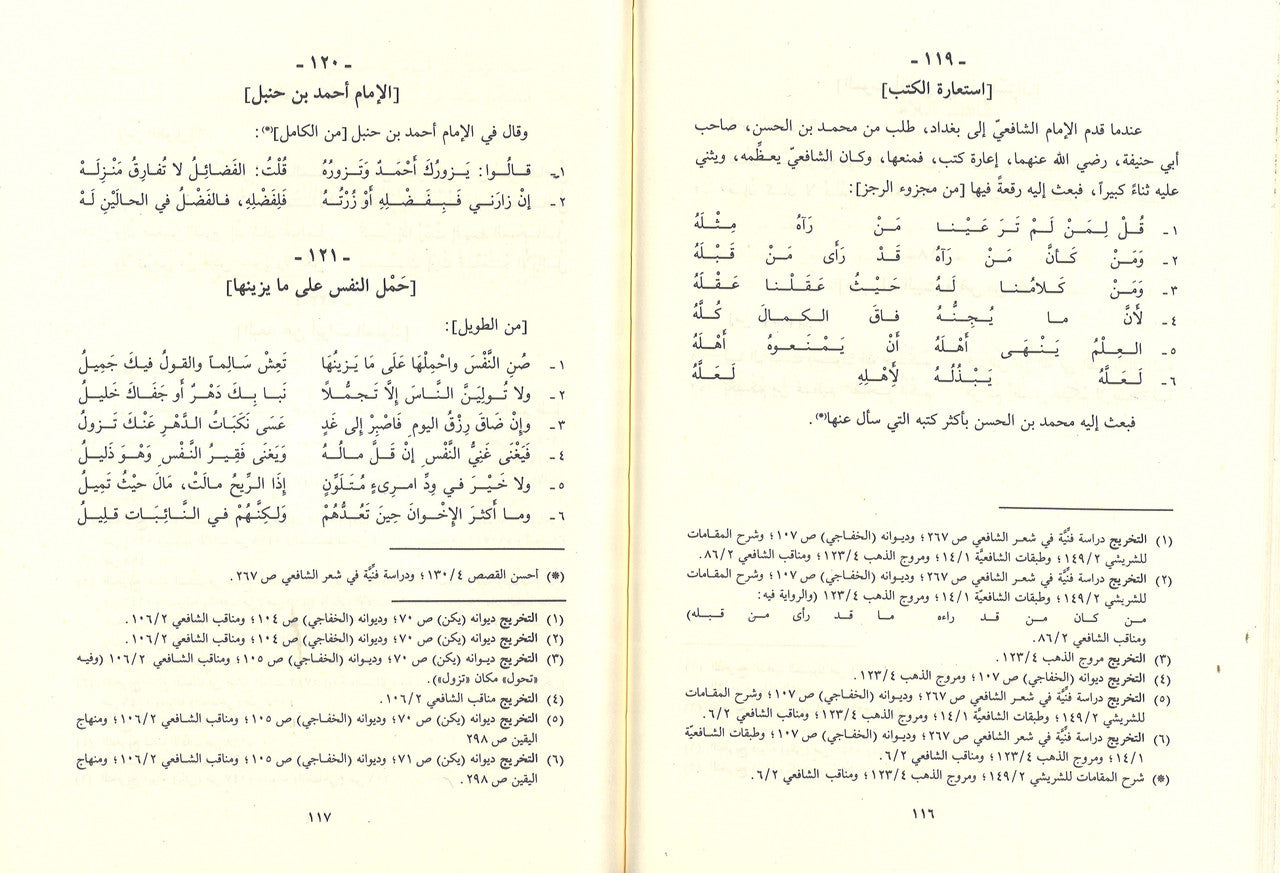 ـ ١١٩ ـ
[استعارة الكتب]
عندما قدم الإمام الشافعيّ إلى بغداد، طلب من محمد بن الحسن، صاحب
أبي حنيفة، رضي الله عنهما، إعارة كتب، فمنعها، وكان الشافعيّ يعظِّمه، ويثني
عليه ثناءً كبيراً، فبعث إليه رقعةً فيها [من مجزوء الرجز]:
١ـ قُـلْ لِـمَـنْ لَـمْ تَـرَ عَـيْـنـا مَـنْ رَآهُ مِـثْـلَهُ
٢ـ وَمَـنْ كَـأنَّ مَـنْ رَآهُ قَـدْ رَأى مَـنْ قَـبْـلَهُ
٣ـ وَمَـنْ كَـلامُـنـا لَـهُ حَـيْـثُ عَـقَـلْـنـا عَـقْـلَهُ
٤ـ لأنَّ ما يُـجِـنُّـهُ فـاقَ الـكـمـالَ كُـلَّهُ
٥ـ العِـلْمُ يَـنْـهَـى أهْـلَهُ أنْ يَـمْـنَـعـوهُ أهْـلَهُ
٦ـ لَـعـلَّهُ يَـبْـذُلُـهُ لأِهْـلِهِ لَـعَـلَّهُ
فبعث إليه محمد بن الحسن بأكثر كتبه التي سأل عنها(*).
(١) التخريج دراسة فنّيَّة في شعر الشافعي ص ٢٦٧؛ وديوانه (الخفاجي) ص ١٠٧؛ وشرح المقامات
للشريشي ١٤٩/٢؛ وطبقات الشافعيَّة ١٤/١؛ ومروج الذهب ١٢٣/٤؛ ومناقب الشافعي ٨٦/٢.
(٢) التخريج دراسة فنّيَّة في شعر الشافعي ص ٢٦٧؛ وديوانه (الخفاجي) ص ١٠٧؛ وشرح المقامات
للشريشي ١٤٩/٢؛ وطبقات الشافعيّة ١٤/١؛ ومروج الذهب ١٢٣/٤ (والرواية فيه:
من كان من قد راءه ما قد رأى من قبله)
ومناقب الشافعي ٨٦/٢.
(٣) التخريج مروج الذهب ١٢٣/٤.
(٤) التخريج ديوانه (الخفاجي) ص ١٠٧؛ ومروج الذهب ١٢٣/٤.
(٥) التخريج دراسة فنّيَّة في شعر الشافعي ص ٢٦٧؛ وديوانه (الخفاجي) ص ١٠٧؛ وشرح المقامات
للشريشي ١٤٩/٢؛ وطبقات الشافعيَّة ١٤/١؛ ومروج الذهب ١٢٣/٤؛ ومناقب الشافعي ٦/٢.
(٦) التخريج دراسة فنّيَّة في شعر الشافعي ص ٢٦٧؛ وديوانه (الخفاجي) ص ١٠٧؛ وطبقات الشافعيّة
١٤/١؛ ومروج الذهب ١٢٣/٤؛ ومناقب الشافعي ٦/٢.
(*) شرح المقامات للشريشي ١٤٩/٢؛ ومروج الذهب ١٢٣/٤؛ ومناقب الشافعي ٦/٢.
١١٦
ـ ١٢٠ ـ
[الإمام أحمد بن حنبل]
وقال في الإمام أحمد بن حنبل [من الكامل](*):
١ـ قـالُـوا: يَـزورُكَ أَحْمَـدٌ وَتَـزورُهُ قُلْتُ: الفَضائِـلُ لا تُفـارِقُ مَنْزِلَهْ
٢ـ إنْ زارَني فَـبِـفَـضْـلِهِ أَوْ زُرْتُـهُ فَلِفَضْلِهِ، فـالفَضْلُ في الحالَيْنِ لَهْ
ـ ١٢١ ـ
[حَمْل النفس على ما يزينها]
[من الطويل]:
١ـ صُنِ النَّفْسَ وَاحْمِلْهَا عَلَى مَا يَـزينُهَا تَعِشْ سَالِمـاً والقولُ فيـكَ جَمِيلُ
٢ـ ولا تُـولِيَنَّ الـنَّـاسَ إلَّا تَـجمُّـلًا نَبـا بِـكَ دَهْـرٌ أو جَفَـاكَ خَليـلُ
٣ـ وإنْ ضَاقَ رِزْقُ اليومِ فَاصْبِرْ إلى غَدٍ عَسَى نَكَبَاتُ الدَّهْرِ عَنْكَ تَـزولُ
٤ـ فَيَغْنَى غَنِيُّ النَّفْسِ إنْ قَـلَّ مالُـهُ وَيَغنَى فَقِيـرُ النَّفْسِ وَهْوَ ذَلِيـلُ
٥ـ ولا خَـيْـرَ في وِدِّ امرِىءٍ مُتَلَوِّنٍ إذَا الرِّيحُ مالَتْ، مَالَ حيْثُ تَمِيلُ
٦ـ ومـا أكثـرَ الإخْـوانَ حِينَ تَعُدُّهُمْ وَلكِنَّهُمْ في النَّـائِبَـات قَلِيـلُ
(*) أحسن القصص ١٣٠/٤؛ ودراسة فنّيَّة في شعر الشافعي ص ٢٦٧.
(١) التخريج ديوانه (يكن) ص ٧٠؛ وديوانه (الخفاجي) ص ١٠٤؛ ومناقب الشافعي ١٠٦/٢.
(٢) التخريج ديوانه (يكن) ص ٧٠؛ وديوانه (الخفاجي) ص ١٠٤؛ ومناقب الشافعي ١٠٦/٢.
(٣) التخريج ديوانه (يكن) ص ٧٠؛ وديوانه (الخفاجي) ص ١٠٥؛ ومناقب الشافعي ١٠٦/٢ (وفيه
«تحول» مكان «تزول»).
(٤) التخريج مناقب الشافعي ١٠٦/٢.
(٥) التخريج ديوانه (يكن) ص ٧٠؛ وديوانه (الخفاجي) ص ١٠٥؛ ومناقب الشافعي ١٠٦/٢؛ ومنهاج
اليقين ص ٢٩٨
(٦) التخريج ديوانه (يكن) ص ٧١؛ وديوانه (الخفاجي) ص ١٠٥؛ ومناقب الشافعي ١٠٦/٢؛ ومنهاج
اليقين ص ٢٩٨.
١١٧